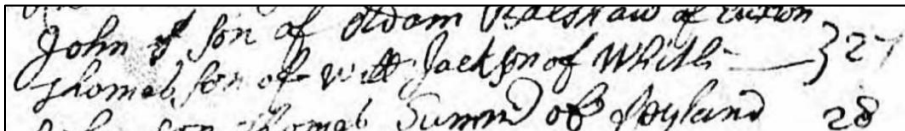 John ye son of Adam Balshaw of Euxton
Thomas son of Will Jackson of Whittle } 27
son Thomas Sumner of Leyland 28